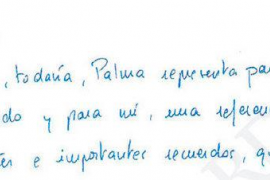 , todavía, Palma representa par
do y para mí, una referenc
es e importantes recuerdos, qu